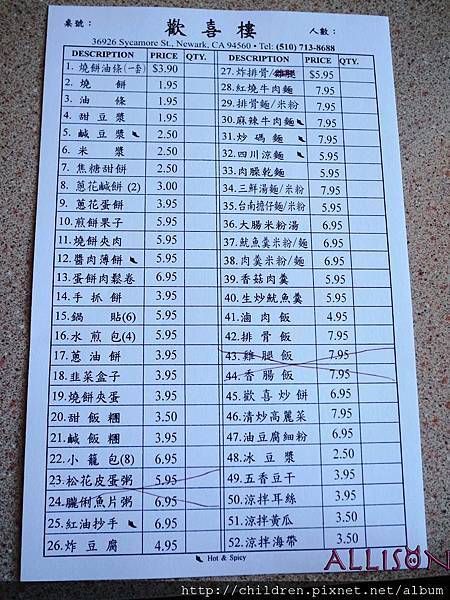 桌號：
歡喜樓
人數：
36926 Sycamore St., Newark, CA 94560 • Tel: (510) 713-8688
DESCRIPTION PRICE QTY.
1. 燒餅油條(一套) $3.90
2. 燒餅 1.95
3. 油條 1.95
4. 甜豆漿 1.95
5. 鹹豆漿 2.50
6. 米漿 2.50
7. 焦糖甜餅 2.50
8. 蔥花鹹餅 (2) 3.00
9. 蔥花蛋餅 3.95
10. 煎餅果子 5.95
11. 燒餅夾肉 5.95
12. 醬肉薄餅 5.95
13. 蛋餅肉鬆卷 6.95
14. 手抓餅 3.95
15. 鍋貼(6) 5.95
16. 水煎包(4) 5.95
17. 蔥油餅 3.95
18. 韭菜盒子 3.95
19. 燒餅夾蛋 3.95
20. 甜飯糰 3.50
21. 鹹飯糰 3.95
22. 小籠包(8) 6.95
23. 松花皮蛋粥 5.95
24. 臘俐魚片粥 6.95
25. 紅油抄手 6.95
26. 炸豆腐 4.95
DESCRIPTION PRICE QTY.
27. 炸排骨/雞腿 $5.95
28. 紅燒牛肉麵 7.95
29. 排骨麵/米粉 7.95
30. 麻辣牛肉麵 7.95
31. 炒碼麵 7.95
32. 四川涼麵 5.95
33. 肉臊乾麵 5.95
34. 三鮮湯麵/米粉 7.95
35. 台南擔仔麵/米粉 5.95
36. 大腸米粉湯 6.95
37. 魷魚羹米粉/麵 6.95
38. 肉羹米粉/麵 6.95
39. 香菇肉羹 5.95
40. 生炒魷魚羹 5.95
41. 滷肉飯 4.95
42. 排骨飯 7.95
43. 雞腿飯 7.95
44. 香腸飯 7.95
45. 歡喜炒餅 6.95
46. 清炒高麗菜 7.95
47. 油豆腐細粉 6.95
48. 冰豆漿 2.50
49. 五香豆干 3.95
50. 涼拌耳絲 3.95
51. 涼拌黃瓜 3.50
52. 涼拌海帶 3.50
Hot & Spicy
ALLISON
http://children.pixnet.net/album